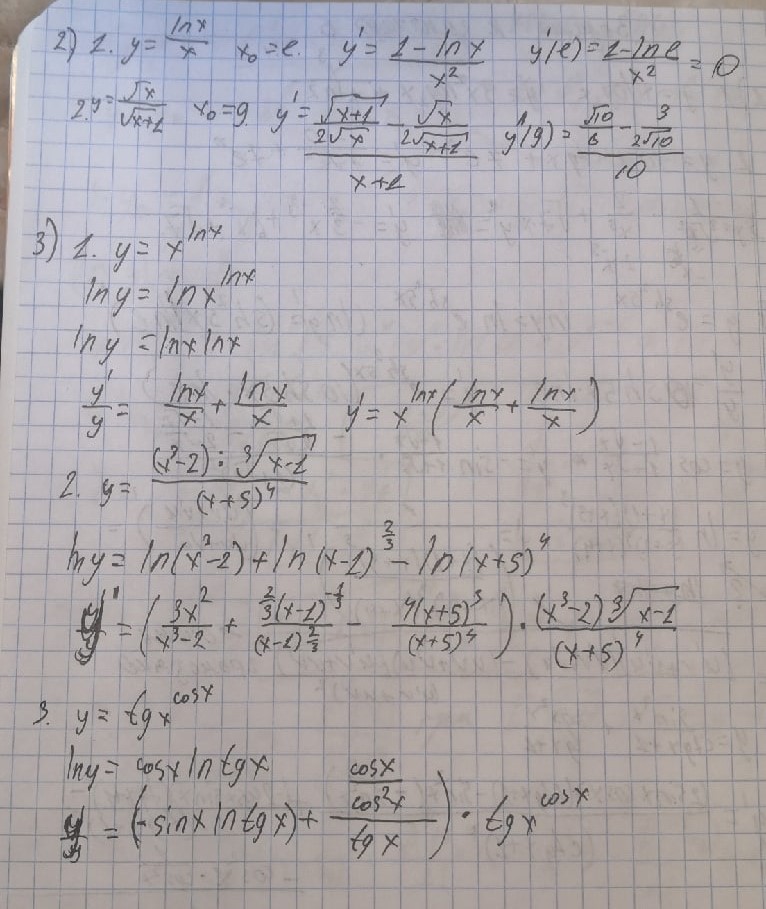 2) 1. y = lnx/x x₀ = e. y' = (1 - lnx)/x² y'(e) = (1 - lne)/x² = 0
2. y = √x/√(x+1) x₀ = 9 y' = (√(x+1)/(2√x) - √x/(2√(x+1)))/(x+1) y'(9) = (√10/6 - 3/(2√10))/10
3) 1. y = x^(lnx)
lny = lnx^(lnx)
lny = lnx lnx
y'/y = lnx/x + lnx/x y' = x^(lnx) (lnx/x + lnx/x)
2. y = ((x³-2) : ³√(x-1))/(x+5)⁴
lny = ln(x³-2) + ln(x-1)^(2/3) - ln(x+5)⁴
y' = (3x²/(x³-2) + (2/3(x-1)^(-1/3))/(x-1)^(2/3) - 4(x+5)³/(x+5)⁴) · ((x³-2) ³√(x-1))/(x+5)⁴
3. y = tgx^(cosx)
lny = cosx ln tgx
y' = (-sinx ln tgx) + (cosx/cos²x)/tgx) · tgx^(cosx)